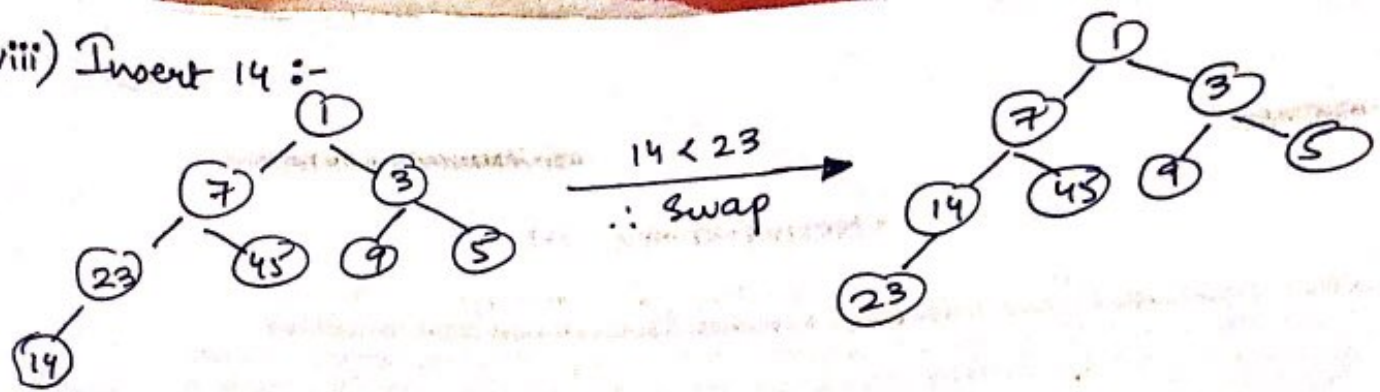 viii) Insert 14 :-
1
7 3
23 45 9 5
14
14 < 23
∴ Swap
1
7 3
14 45 9 5
23